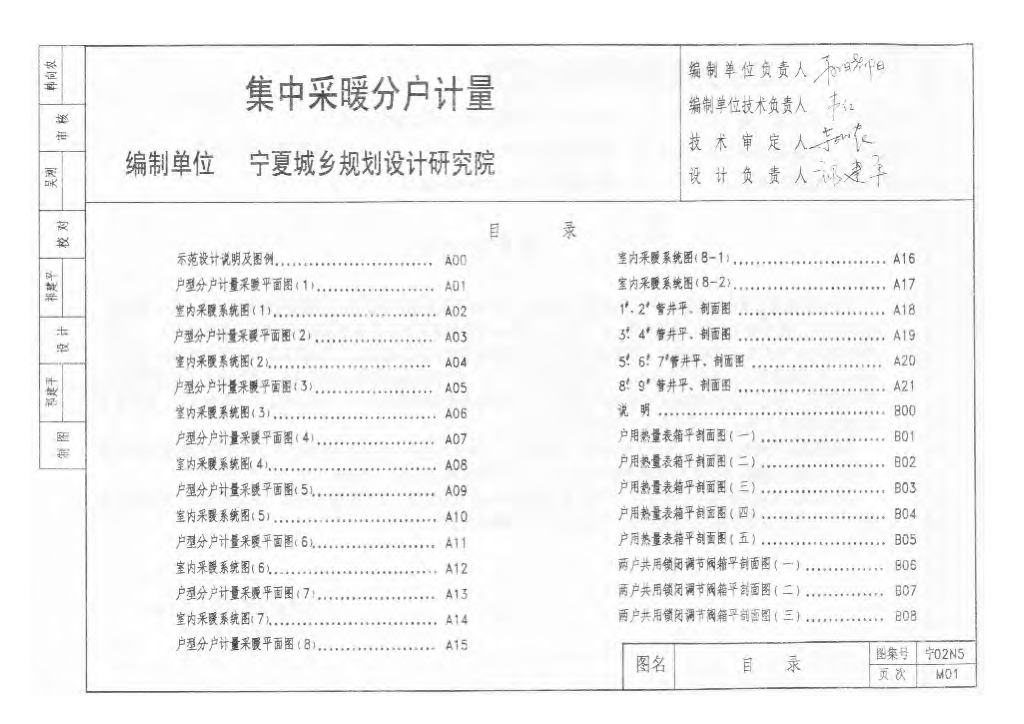 集中采暖分户计量
编制单位 宁夏城乡规划设计研究院
编制单位负责人
编制单位技术负责人 韦红
技术审定人
设计负责人 祁建平
目 录
示范设计说明及图例 A00
户型分户计量采暖平面图(1) A01
室内采暖系统图(1) A02
户型分户计量采暖平面图(2) A03
室内采暖系统图(2) A04
户型分户计量采暖平面图(3) A05
室内采暖系统图(3) A06
户型分户计量采暖平面图(4) A07
室内采暖系统图(4) A08
户型分户计量采暖平面图(5) A09
室内采暖系统图(5) A10
户型分户计量采暖平面图(6) A11
室内采暖系统图(6) A12
户型分户计量采暖平面图(7) A13
室内采暖系统图(7) A14
户型分户计量采暖平面图(8) A15
室内采暖系统图(8-1) A16
室内采暖系统图(8-2) A17
1# 2# 管井平、剖面图 A18
3# 4# 管井平、剖面图 A19
5# 6# 7# 管井平、剖面图 A20
8# 9# 管井平、剖面图 A21
说 明 B00
户用热量表箱平剖面图(一) B01
户用热量表箱平剖面图(二) B02
户用热量表箱平剖面图(三) B03
户用热量表箱平剖面图(四) B04
户用热量表箱平剖面图(五) B05
两户共用锁闭调节阀箱平剖面图(一) B06
两户共用锁闭调节阀箱平剖面图(二) B07
两户共用锁闭调节阀箱平剖面图(三) B08
图名 目 录 图集号 宁02N5
页次 M01
韩向农
审核
吴润
校对
祁建平
设计
祁建平
制图